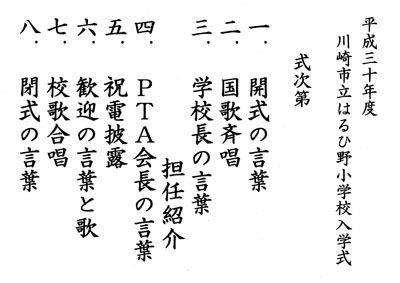 平成三十年度
川崎市立はるひ野小学校入学式
式次第
一. 開式の言葉
二. 国歌斉唱
三. 学校長の言葉
担任紹介
四. PTA会長の言葉
五. 祝電披露
六. 歓迎の言葉と歌
七. 校歌合唱
八. 閉式の言葉